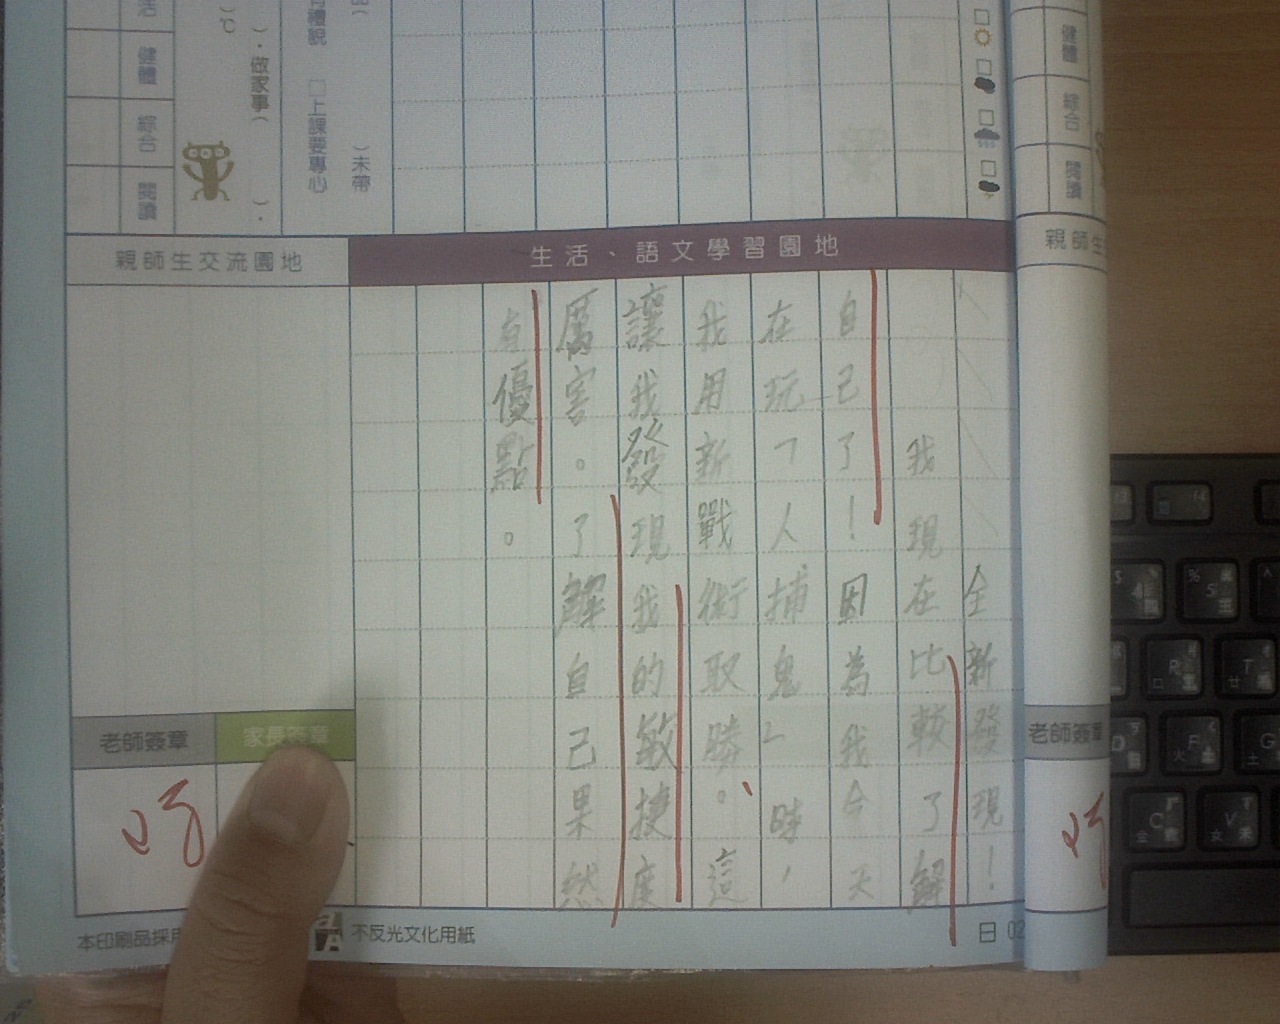 生活、語文學習園地
全新發現！
我現在比較了解
自己了！因為我今天
在玩「人捕鬼」時，
我用新戰術取勝。這
讓我發現我的敏捷度
厲害。了解自己果然
有優點。
親師生交流園地
老師簽章
家長簽章
活
健體
綜合
閱讀
)℃
)．做家事(
)．
有禮貌 □上課要專心
)未帶
不反光文化用紙
日 02
健體
綜合
閱讀
親師生
老師簽章